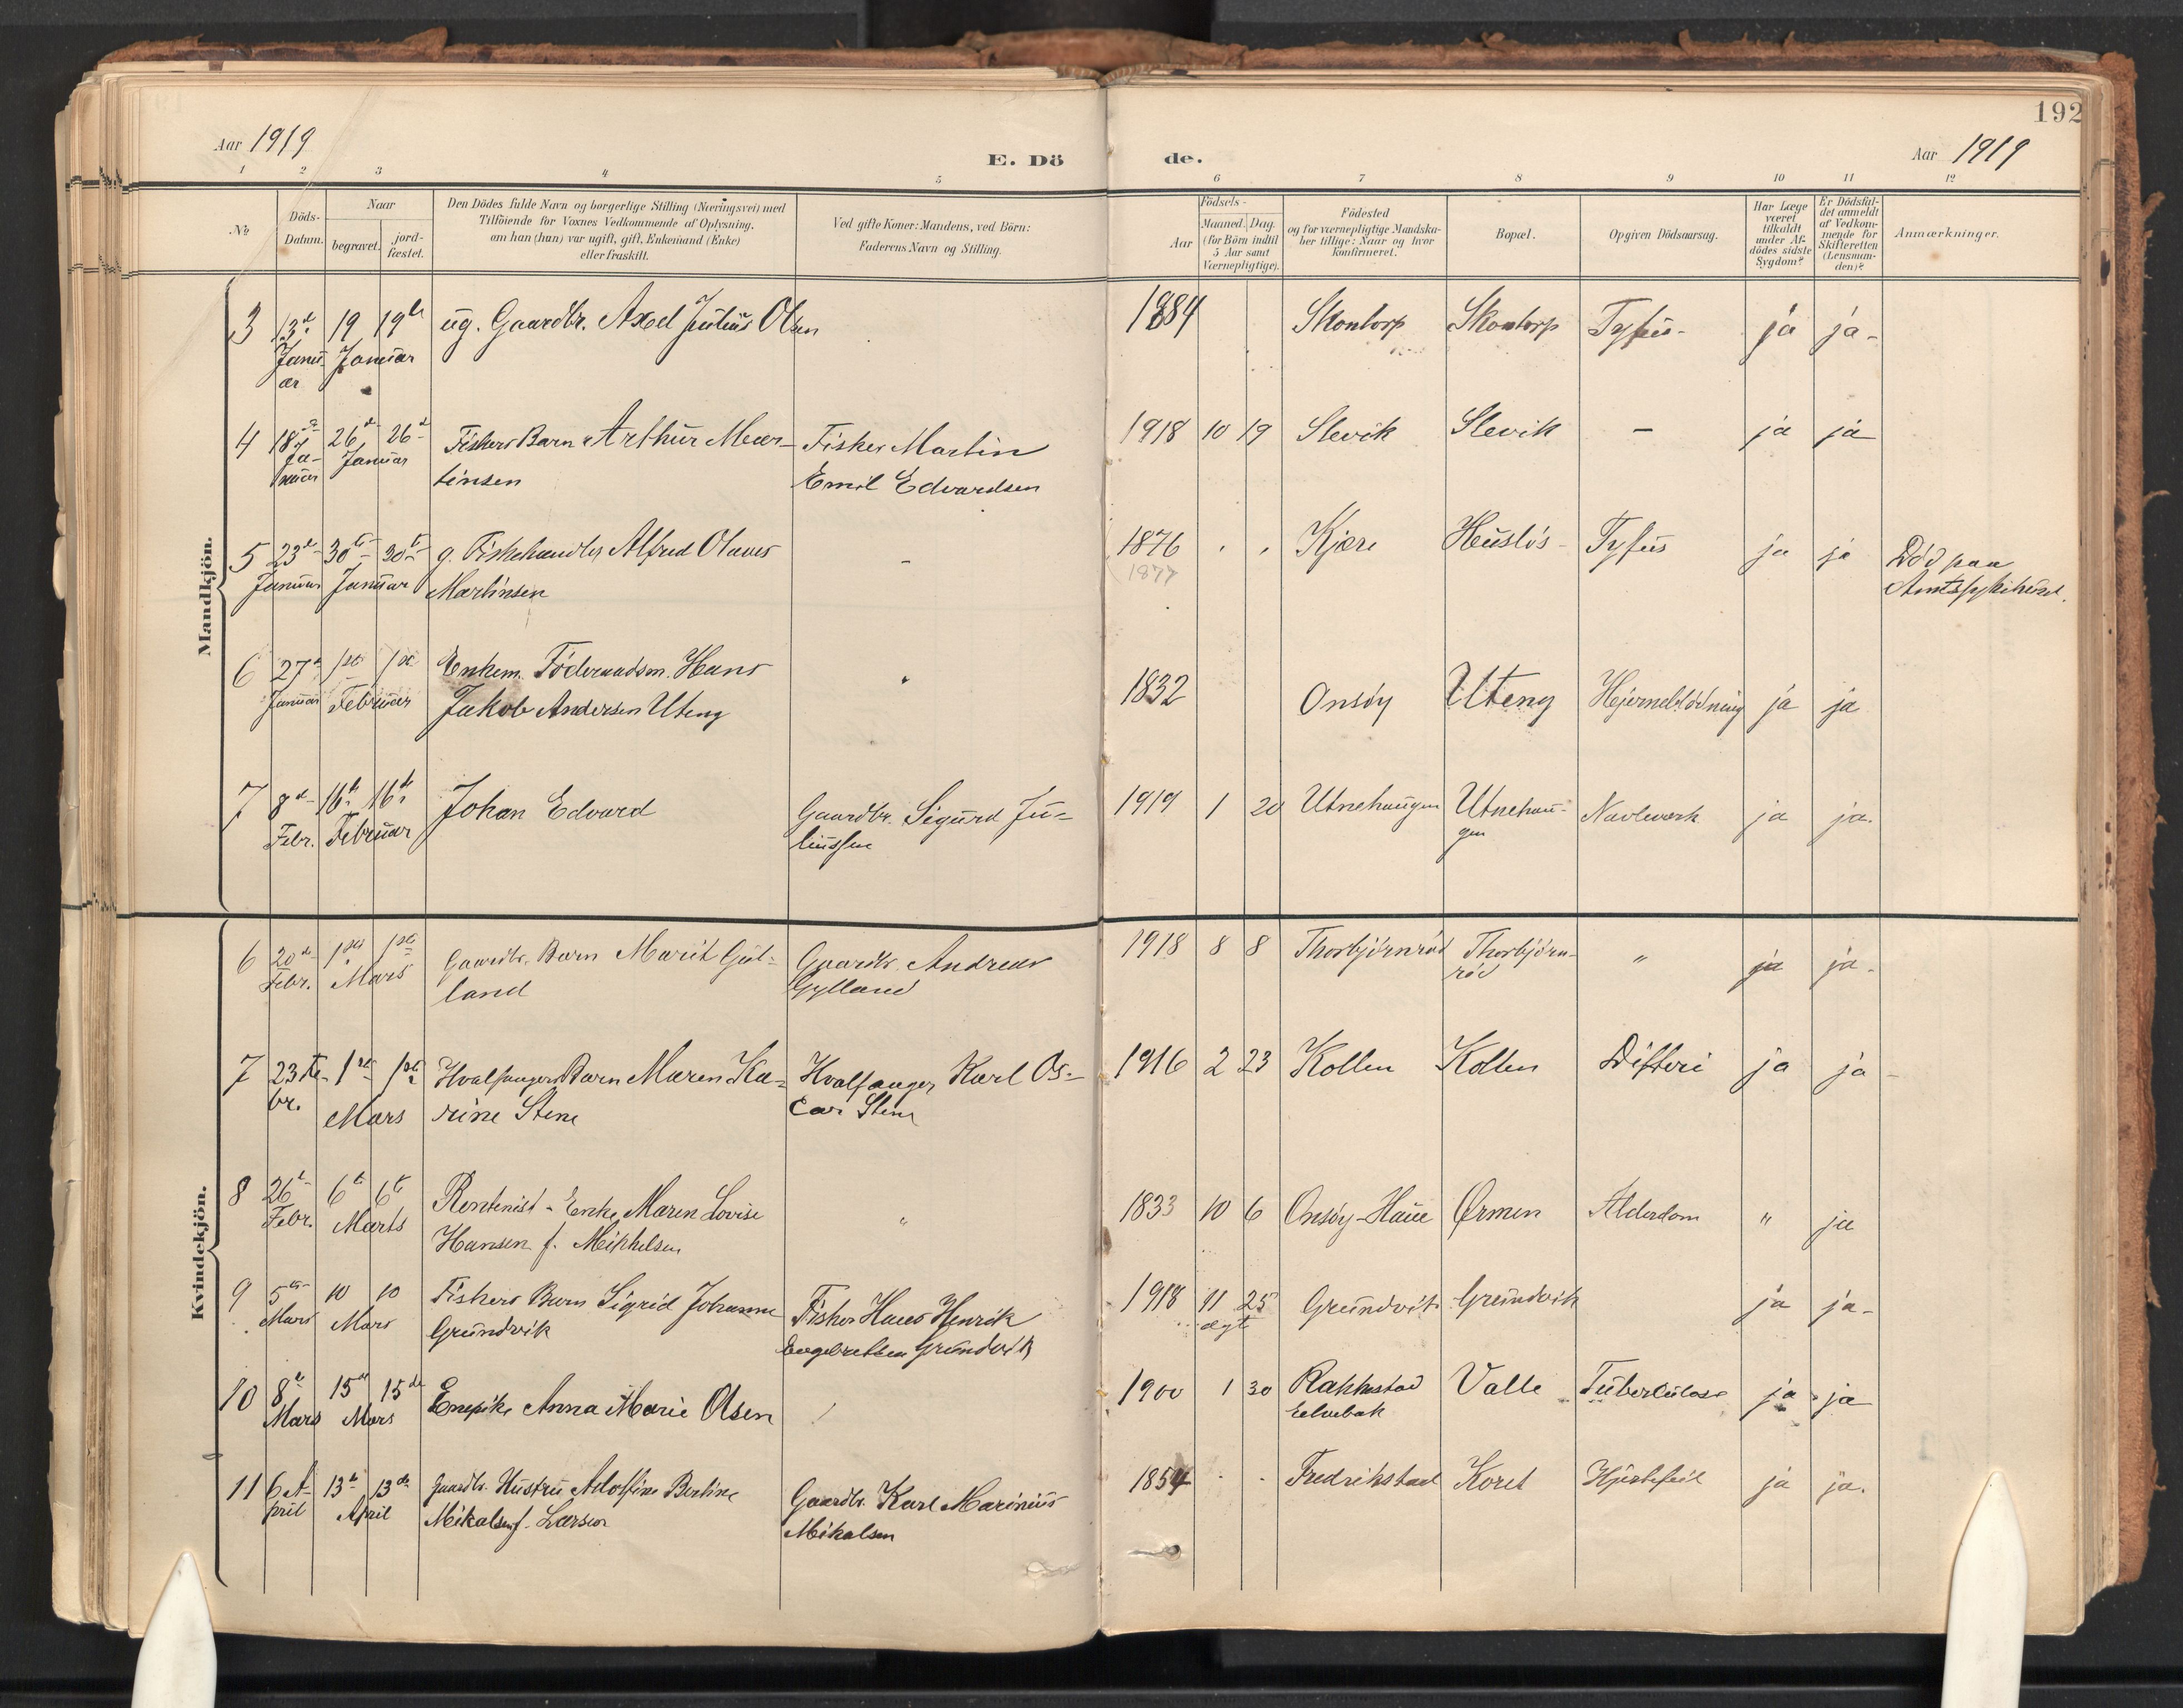 192
Aar 1919
E. Dö
de.
Aar 1919
1 2 3 4 5 6 7 8 9 10 11 12
No
Döds-
Datum.
Naar
begravet.
jord-
fæstet.
Den Dödes fulde Navn og borgerlige Stilling (Næringsvei) med
Tilföiende for Voxnes Vedkommende af Oplysning,
om han (hun) var ugift, gift, Enkemand (Enke)
eller fraskilt.
Ved gifte Koner: Mandens, ved Börn:
Faderens Navn og Stilling.
Födsels-
Aar
Maaned. Dag.
(for Börn indtil
5 Aar samt
Værnepligtige).
Födested
og for værnepligtige Mandska-
ber tillige: Naar og hvor
konfirmeret.
Bopæl.
Opgiven Dödsaarsag.
Har Læge
været
tilkaldt
under Af-
dödes sidste
Sygdom?
Er Dödsfal-
det anmeldt
af Vedkom-
mende for
Skifteretten
(Lensman-
den)?
Anmærkninger.
Mandkjön.
3 13de 19 19de ug. Gaardbr. Axel Julius Olsen 1884 Skontorp Skontorp Tyfus - ja ja -
Janu- Januar
ar
4 18de 26de 26de Fiskers Barn Arthur Mar- Fisker Martin 1918 10 19 Slevik Slevik - ja ja
Ja- Januar tinsen Emil Edvardsen
nuar
5 23de 30te 30te g. Fiskehandler Alfred Olaves - 1876 Kjære Huslös - Tyfus ja ja Död paa
Januar Januar Martinsen 1877 Amtssykehuset.
6 27de 1ste 1ste Enkem. Föderaadsm. Hans 1832 Onsöy Uteng Hjerneblödning ja ja
Januar Februar Jakob Andersen Uteng
7 8de 16de 16de Johan Edvard Gaardbr. Sigurd Ju- 1919 1 20 Utnehaugen Utnehau- Navleverk ja ja.
Febr. Februar liussen gen
Kvindekjön.
6 20de 1ste 1ste Gaardbr. Barn Marit Gul- Gaardbr. Andreas 1918 8 8 Thorbjörnröd Thorbjörn- " ja ja.
Febr. Mars land Gylland röd
7 23 Fe- 1ste 1ste Hvalfangers Barn Maren Ka- Hvalfanger Karl Os- 1916 2 23 Kollen Kollen Difteri ja ja -
br. Mars rine Stene car Stene
8 26de 6te 6te Rentenist - Enke Maren Lovise " 1833 10 6 Onsöy-Haue Ørmen Alderdom " ja
Febr. Marts Hansen f. Mikkelsen
9 5te 10 10 Fiskers Barn Sigrid Johanne Fisker Hans Henrik 1918 11 25 Grundvik Grundvik ja ja -
Mars Mars Grundvik Engebretsen Grundvik
10 8de 15de 15de Enepike Anna Marie Olsen 1900 1 30 Rakkestad Valle Tuberkulose ja ja
Mars Mars
11 6 A- 13de 13de Gaardbr. Hustru Adolfine Bertine Gaardbr. Karl Marinius 1854 Fredrikstad Koret Hjertefeil ja ja.
pril April Mikalsen f. Larsen Mikalsen